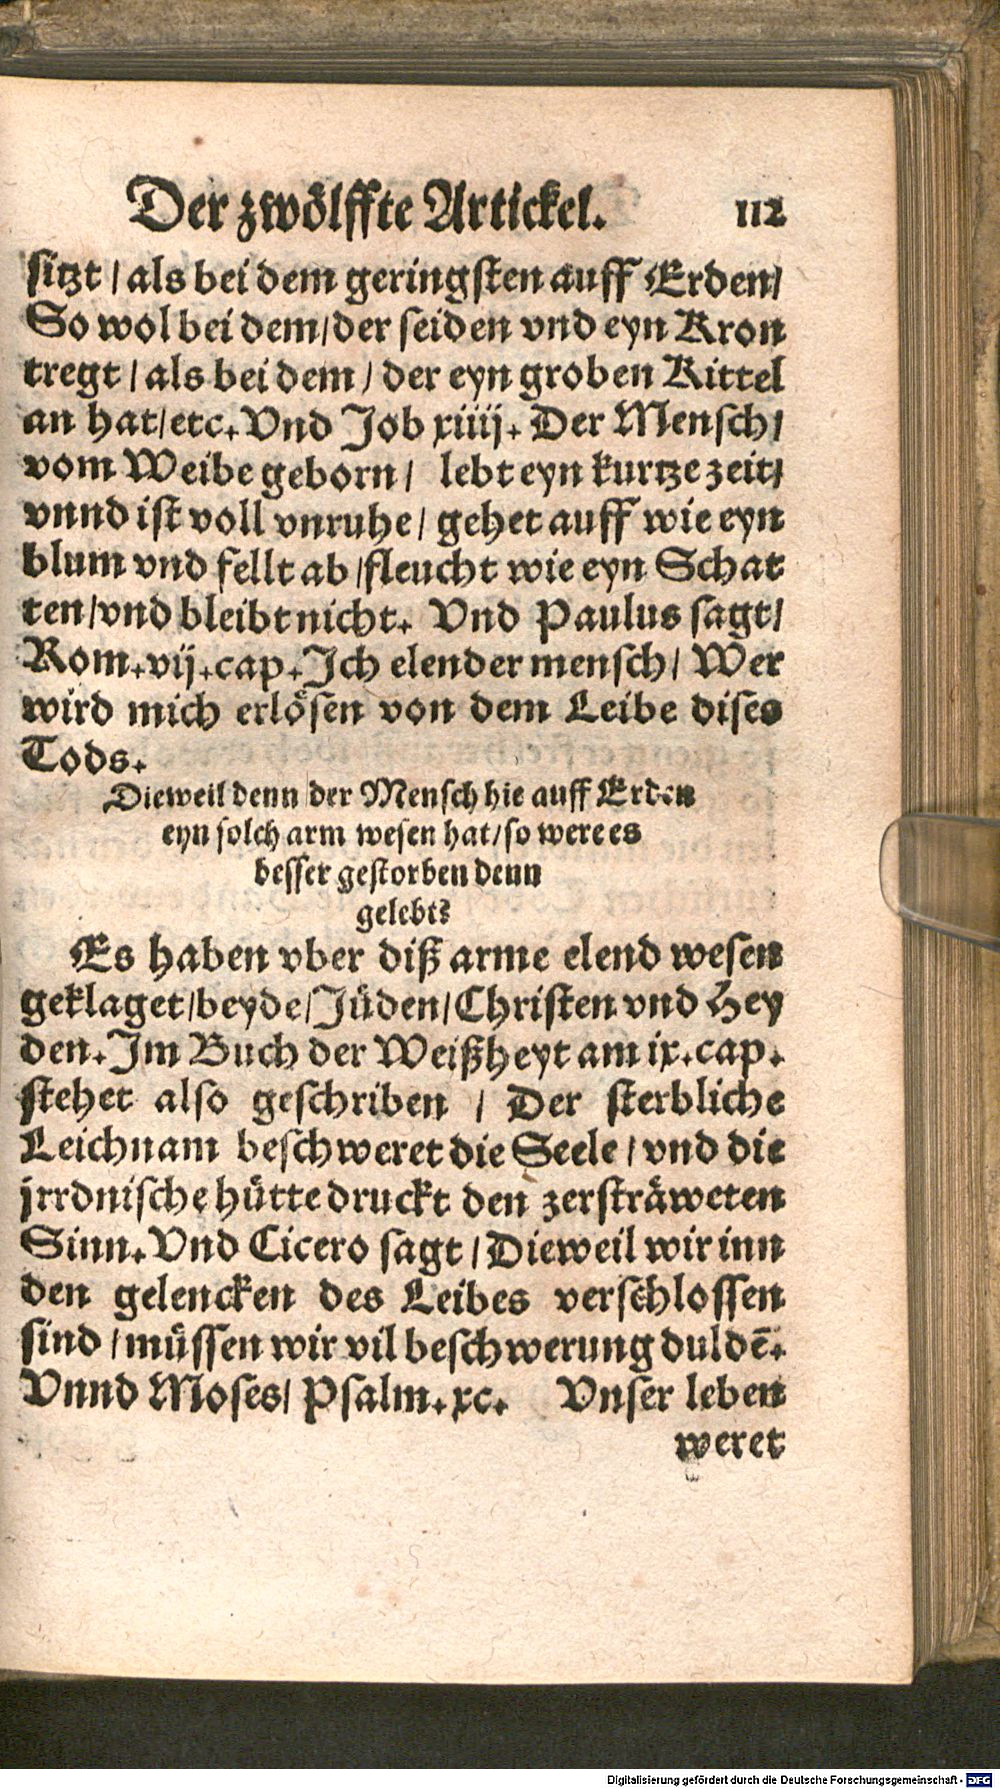 Der zwölffte Artickel. 112
sitzt / als bei dem geringsten auff Erden /
So wol bei dem / der seiden vnd eyn Kron
tregt / als bei dem / der eyn groben Kittel
an hat / etc. Vnd Job xiiij. Der Mensch /
vom Weibe geborn / lebt eyn kurtze zeit /
vnnd ist voll vnruhe / gehet auff wie eyn
blum vnd fellt ab / fleucht wie eyn Schat
ten / vnd bleibt nicht. Vnd Paulus sagt /
Rom. vij. cap. Ich elender mensch / Wer
wird mich erlösen von dem Leibe dises
Tods.
Dieweil denn der Mensch hie auff Erden
eyn solch arm wesen hat / so were es
besser gestorben denn
gelebt?
Es haben vber diß arme elend wesen
geklaget / beyde / Jüden / Christen vnd Hey
den. Im Buch der Weißheyt am ix. cap.
stehet also geschriben / Der sterbliche
Leichnam beschweret die Seele / vnd die
jrrdnische hütte druckt den zersträweten
Sinn. Vnd Cicero sagt / Dieweil wir inn
den gelencken des Leibes verschlossen
sind / müssen wir vil beschwerung duldē.
Vnnd Moses / Psalm. xc. Vnser leben
weret
Digitalisierung gefördert durch die Deutsche Forschungsgemeinschaft - DFG